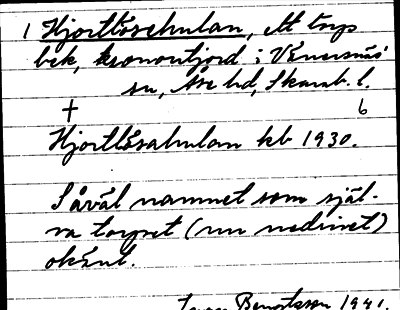 1 Hjortlösahulan, ett torps
bek, kronontjord i Vänersnäs
sn, Åse hd, Skarab. l.
† 6
Hjortlösahulan kb 1930.
Såväl namnet som själ-
va torpet (nu nedrivet)
okänt.
Bengtsson 1941.